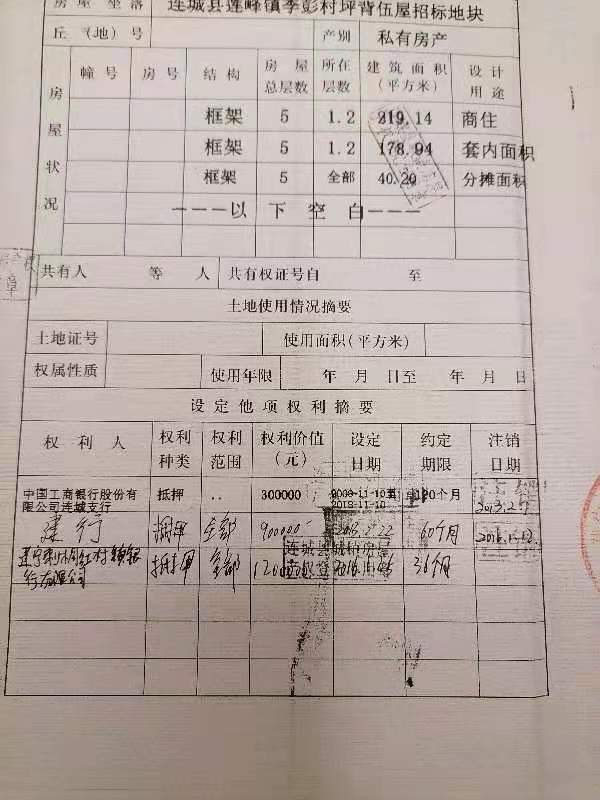 房屋坐落 连城县莲峰镇李彭村坪背伍屋招标地块
丘(地)号 产别 私有房产
房屋状况
幢号 房号 结构 房屋总层数 所在层数 建筑面积(平方米) 设计用途
框架 5 1.2 219.14 商住
框架 5 1.2 178.94 套内面积
框架 5 全部 40.20 分摊面积
---以下空白---
共有人 等 人 共有权证号自 至
土地使用情况摘要
土地证号 使用面积(平方米)
权属性质 使用年限 年 月 日至 年 月 日
设定他项权利摘要
权利人 权利种类 权利范围 权利价值(元) 设定日期 约定期限 注销日期
中国工商银行股份有限公司连城支行 抵押 .. 300000 2008-11-10至2018-11-10 120个月 2013.2.7
建行 抵押 全部 900000 60个月
抵押 全部 36个月